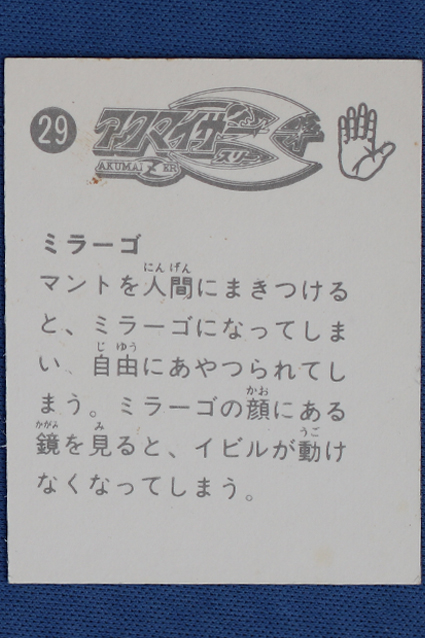 29
アクマイザー
スリー
AKUMAIZER
ミラーゴ
にんげん
マントを人間にまきつける
と、ミラーゴになってしま
じゆう
い、自由にあやつられてし
かお
まう。ミラーゴの顔にある
かがみ み うご
鏡を見ると、イビルが動け
なくなってしまう。